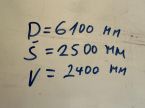 D=6100 мм
Š=2500 мм
V=2400 мм